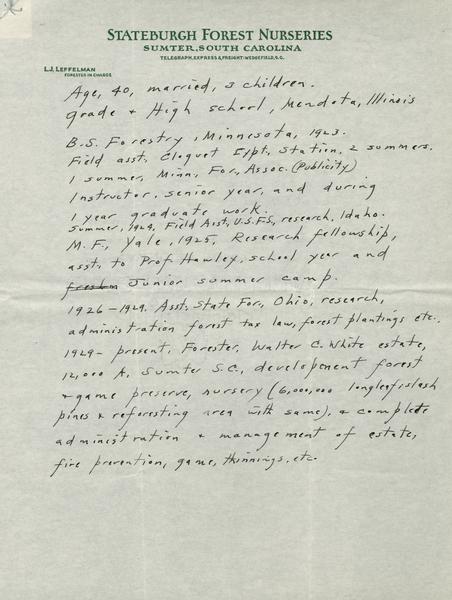 STATEBURGH FOREST NURSERIES
SUMTER, SOUTH CAROLINA
TELEGRAPH, EXPRESS & FREIGHT: WEDGEFIELD, S.C.
L.J. LEFFELMAN
FORESTER IN CHARGE
Age, 40, married, 3 children.
Grade + High school, Mendota, Illinois
B.S. Forestry, Minnesota, 1923.
Field asst. Cloquet Expt. Station, 2 summers.
1 summer, Minn. For. Assoc. (Publicity)
Instructor, senior year, and during
1 year graduate work.
Summer, 1924, Field Asst, U.S.F.S, research, Idaho.
M.F., Yale, 1925, Research fellowship,
asst. to Prof. Hawley, school year and
freshm Junior summer camp.
1926-1929. Asst. State For., Ohio, research,
administration forest tax law, forest plantings etc.
1929- present, Forester, Walter C. White estate,
12,000 A, Sumter S.C., development forest
+ game preserve, nursery (6,000,000 longleaf + slash
pines + reforesting area with same), + complete
administration + management of estate,
fire prevention, game, thinnings, etc.